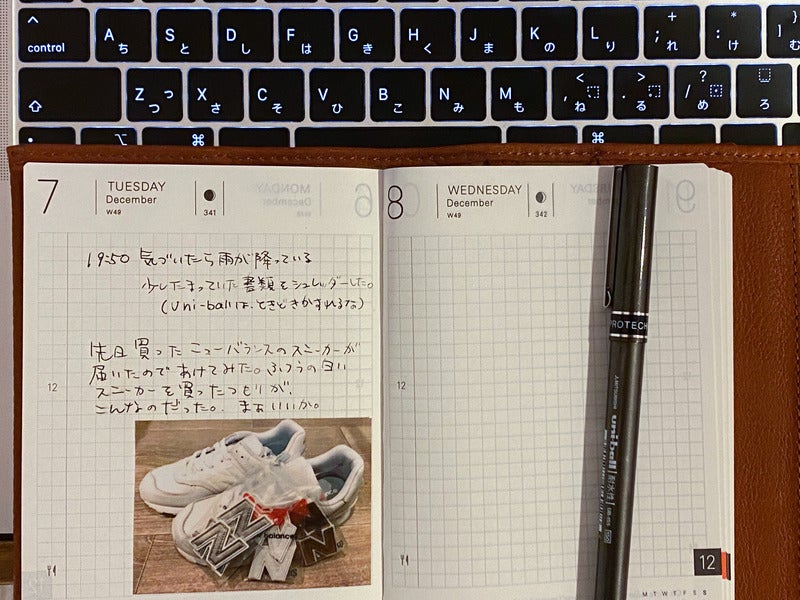 control
A ち
S と
D し
F は
G き
H く
J ま
K の
L り
+ ; れ
* : け
] む
Z つ っ
X さ
C そ
V ひ
B こ
N み
M も
< , ね
> . る
? / め
ろ
⌥
⌘
⌘
7 TUESDAY
December
W49
341
19:50 気づいたら雨が降っている
少したまっていた書類をシュレッダーした。
(uni-ballは、ときどきかすれるな)
先日買ったニューバランスのスニーカーが
届いたのであけてみた。ふつうの白い
スニーカーを買ったつもりが、
こんなのだった。まぁいいか。
12
balance
8 WEDNESDAY
December
W49
342
12
12
M T W T F S S
PROTECH
uni-ball
耐水性
MONDAY
December
6